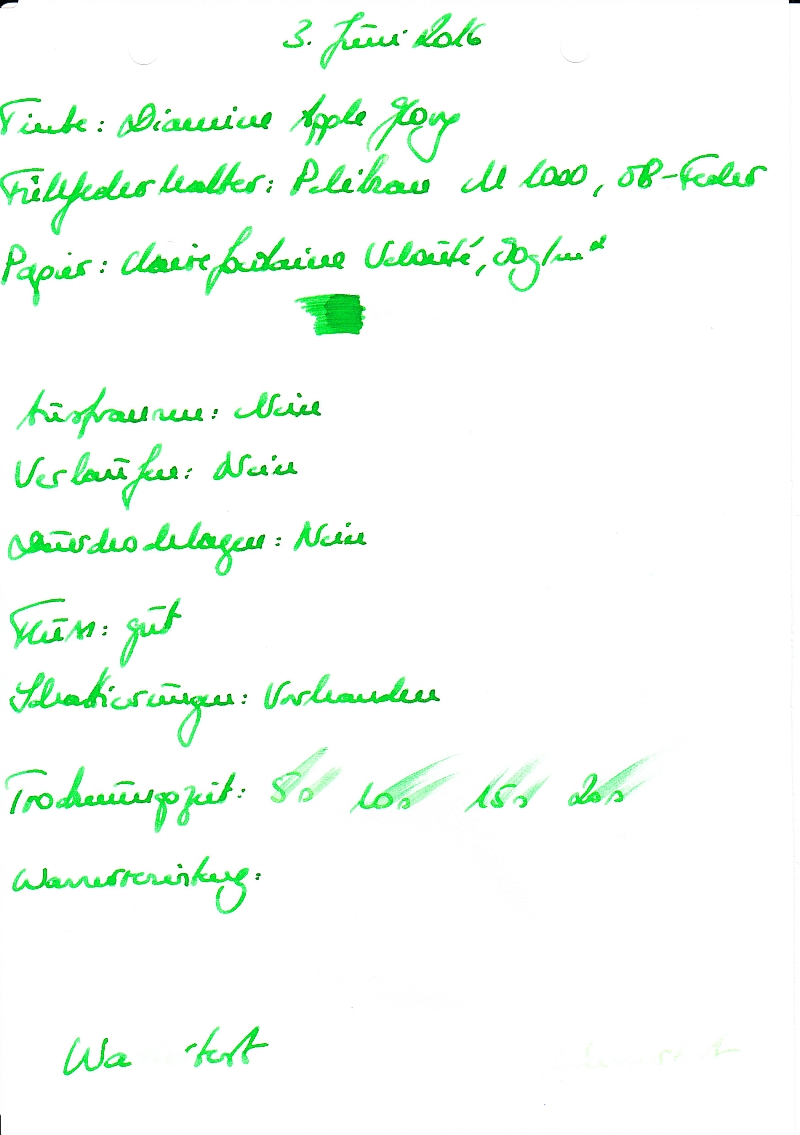 3. Juni 2016
Tinte: Diamine Apple Glory
Füllfederhalter: Pelikan M 1000, OB-Feder
Papier: Clairefontaine Velouté, 90g/m²
Ausfransen: Nein
Verlaufen: Nein
Durchschlagen: Nein
Fluss: gut
Schattierungen: Vorhanden
Trocknungszeit: 5s 10s 15s 20s
Wa test